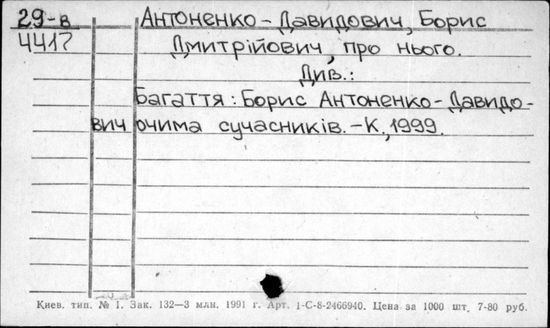 29-в
4417
Антоненко-Давидович, Борис
Дмитрійович, про нього.
Див.:
Багаття: Борис Антоненко-Давидо-
вич очима сучасників.-К, 1999.
Киев. тип. № 1. Зак. 132—3 млн. 1991 г. Арт. 1-С-8-2466940. Цена за 1000 шт. 7-80 руб.